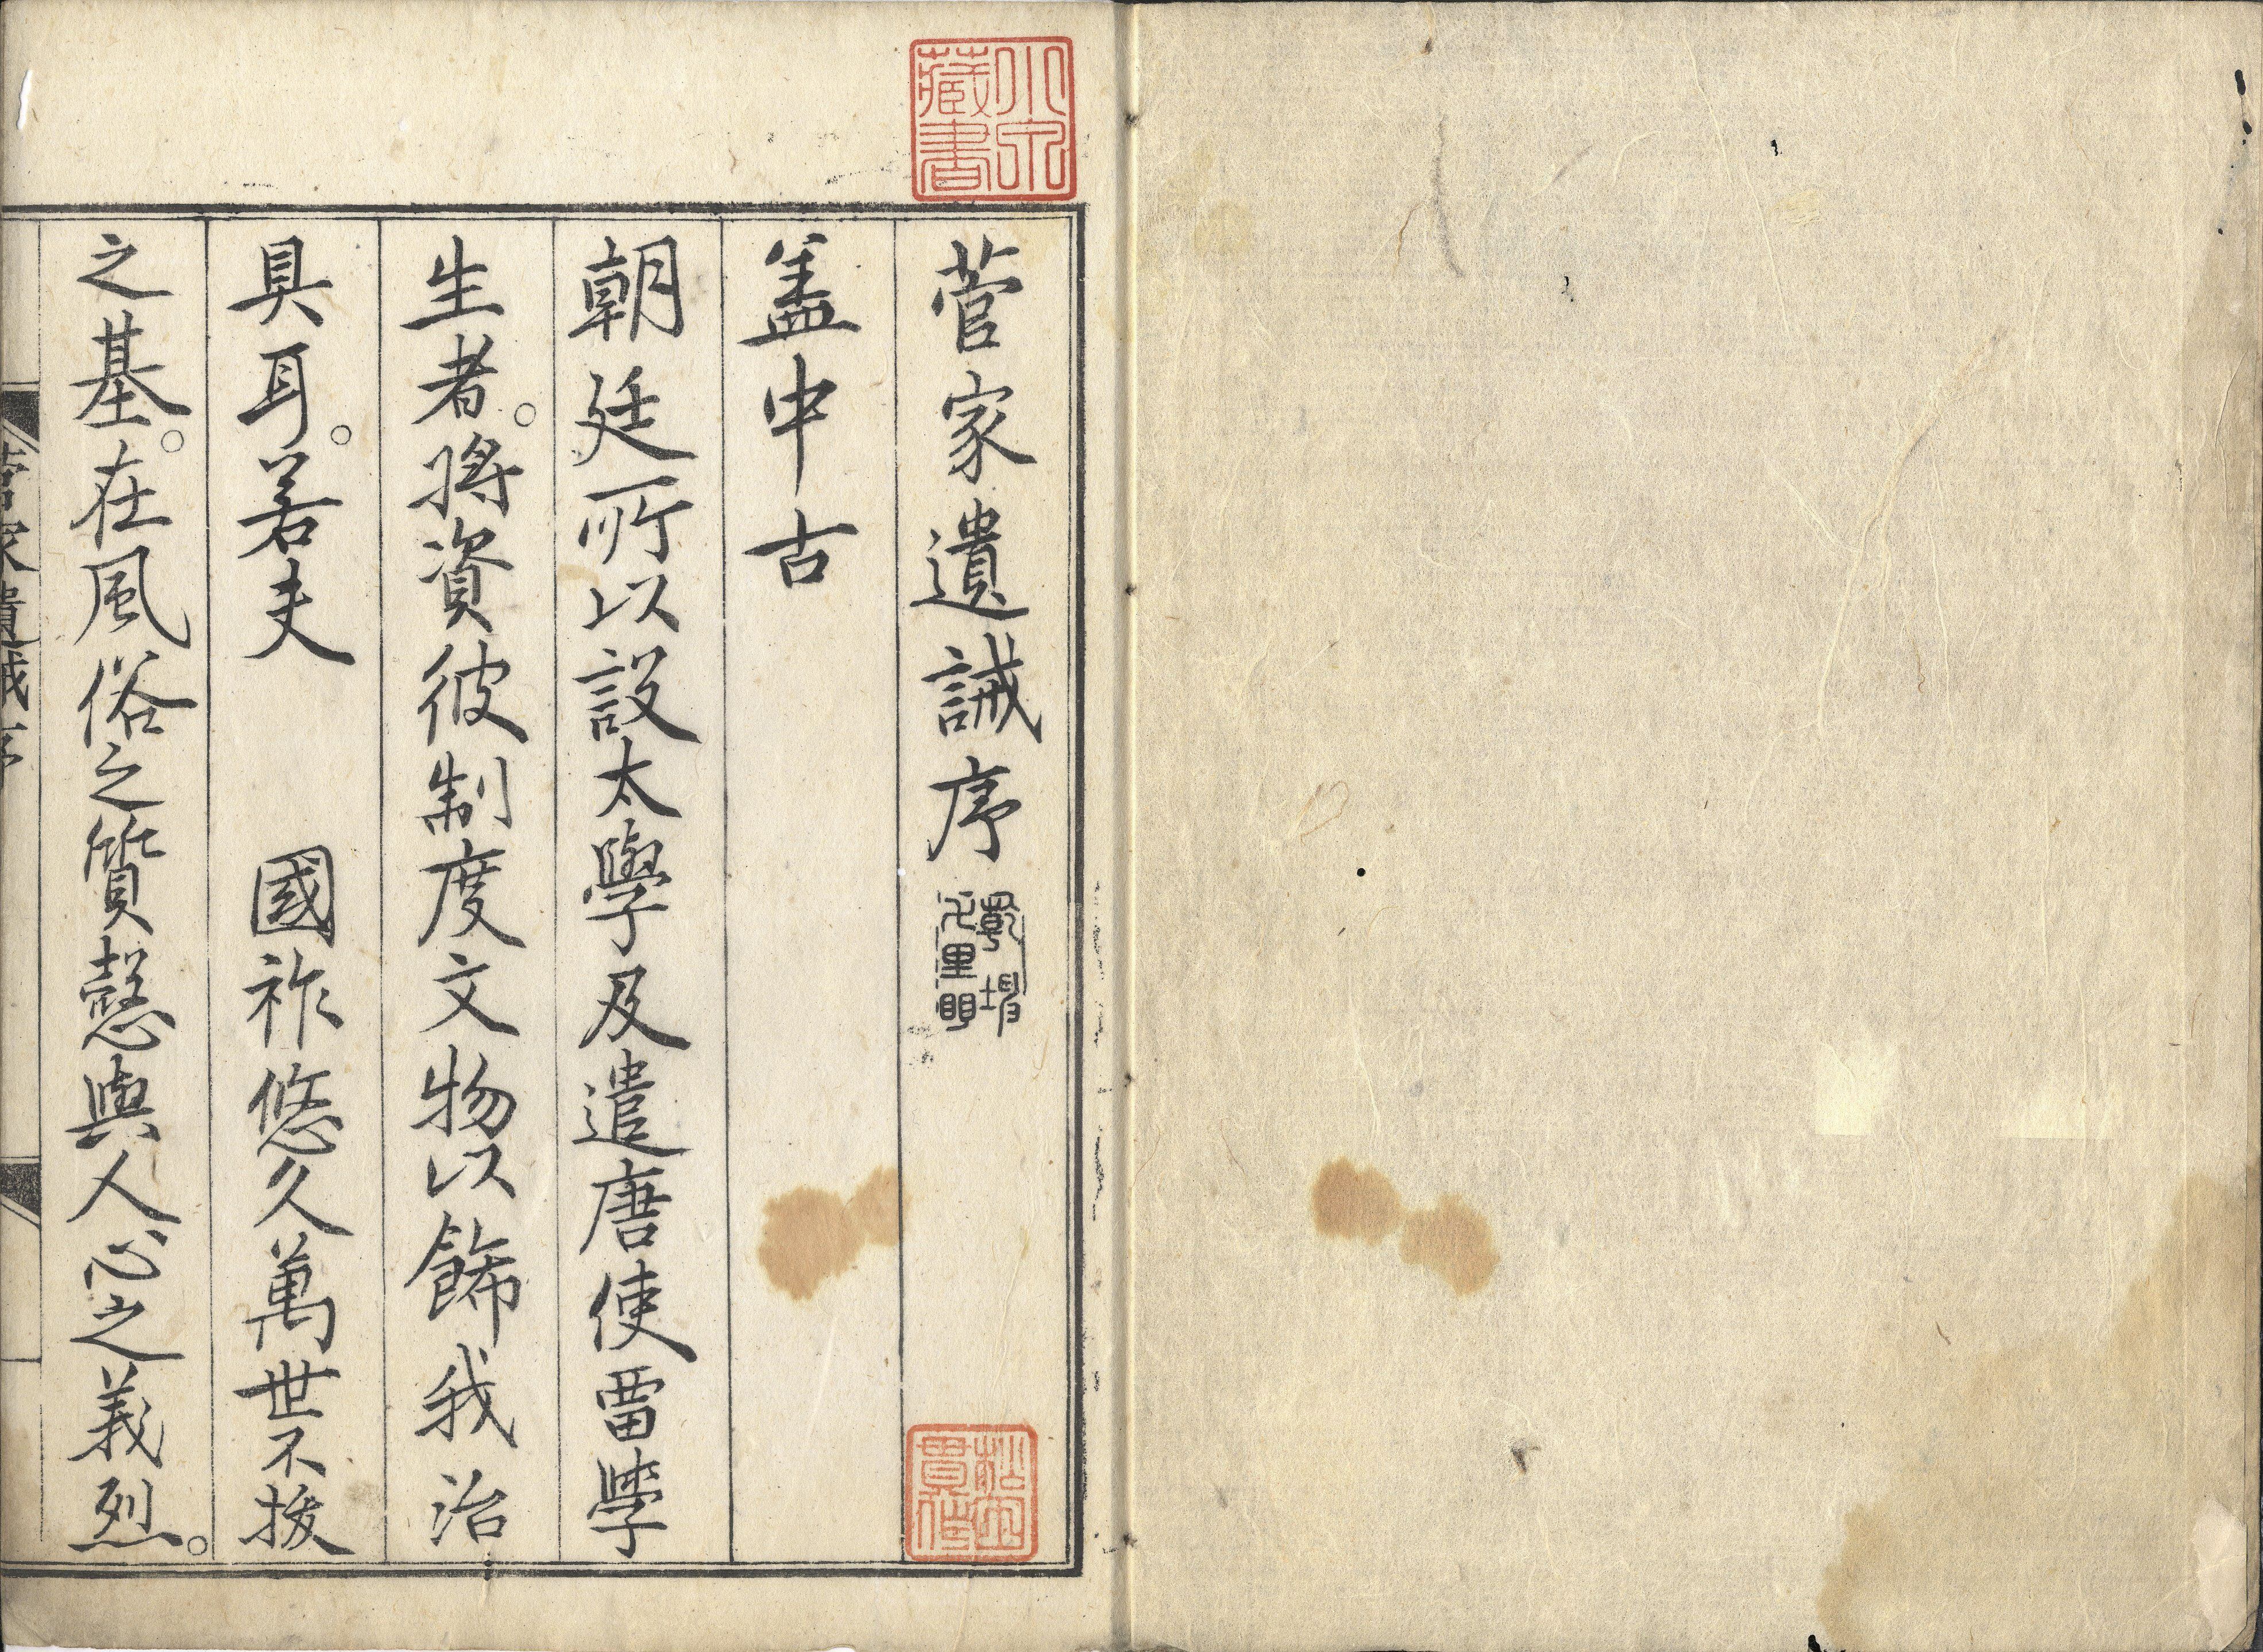 藏書
菅家遺誡序
盖中古
朝廷所以設太學及遣唐使畱學
生者。将資彼制度文物以餙我治
具耳。若夫　國祚悠久萬世不拔
之基。在風俗之質愨與人心之義烈。
菅家遺誡序